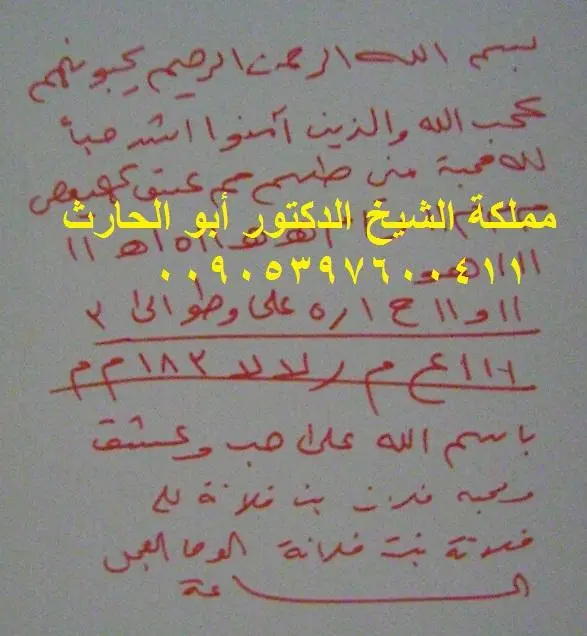 بسم الله الرحمن الرحيم يحبونهم
كحب الله والذين آمنوا اشد حبأ
لله محبة من طسم حم عسق كهيعص
مملكة الشيخ الدكتور أبو الحارث
٠٠٩٠٥٣٩٧٦٠٠٤١١
١١ و ١١ ح ١ ره على وطوالى ٣
١١٦ ع م ر لا لا ١٨٣ م م
باسم الله على حب وعشق
ومحبه فلان بن فلانة على
فلانة بنت فلانة الوحا العجل
الساعة